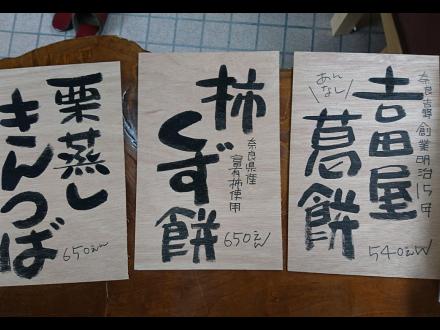 栗蒸し
きんつば
650えん
柿
くず餅
奈良県産
富有柿使用
650えん
奈良吉野 創業明治15年
吉田屋
あん
なし
葛餅
540えん